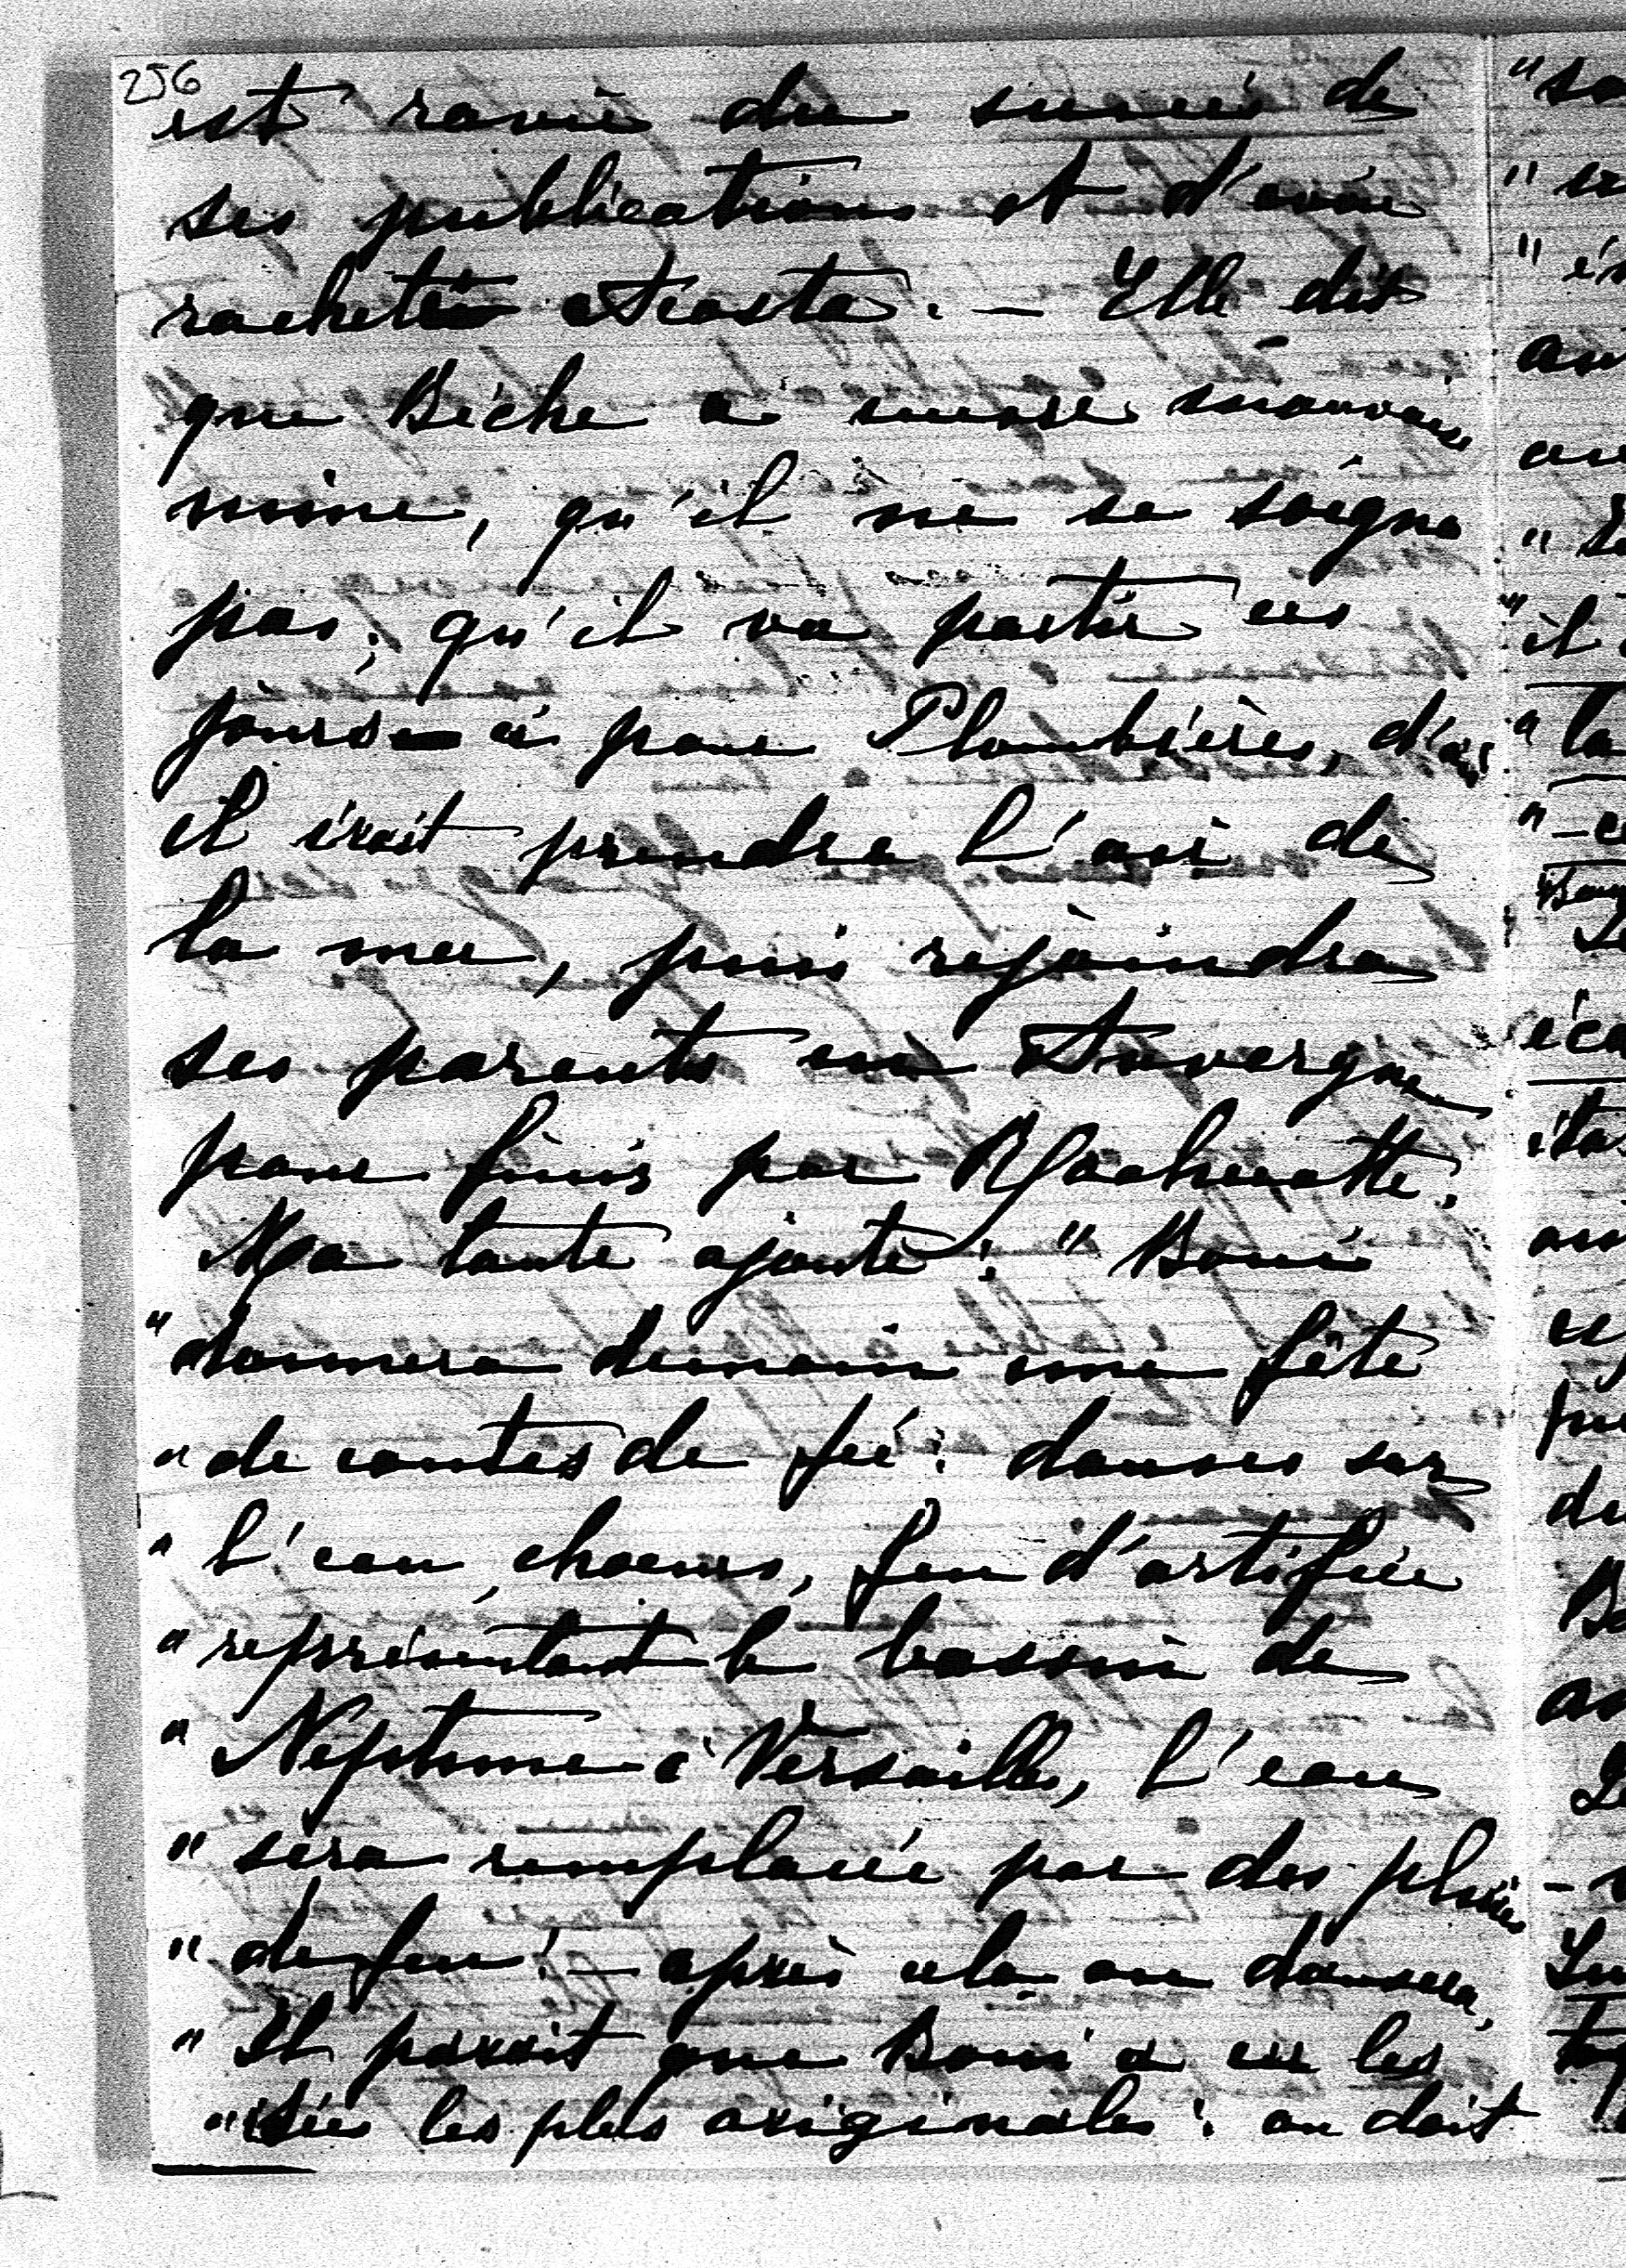 256
est ravie du succès de
ses publications et d'avoir
racheté Acosta. — Elle dit
que Béche a encore mauvaise
mine, qu'il ne se soigne
pas, qu'il va partir ces
jours-ci pour Plombières, d'où
il irait prendre l'air de
la mer, puis rejoindra
ses parents en Auvergne
pour finir par
Ma tante ajoute: " Boni
" donnera demain une fête
" de contes de fée: danses sur
" l'eau, choeurs, feu d'artifice
" représentant le bassin de
" Neptune à Versailles, l'eau
" sera remplacée par des pluies
" de feu! — après cela on dansera,
" Il parait que Boni a eu les
" idées les plus originales: on doit